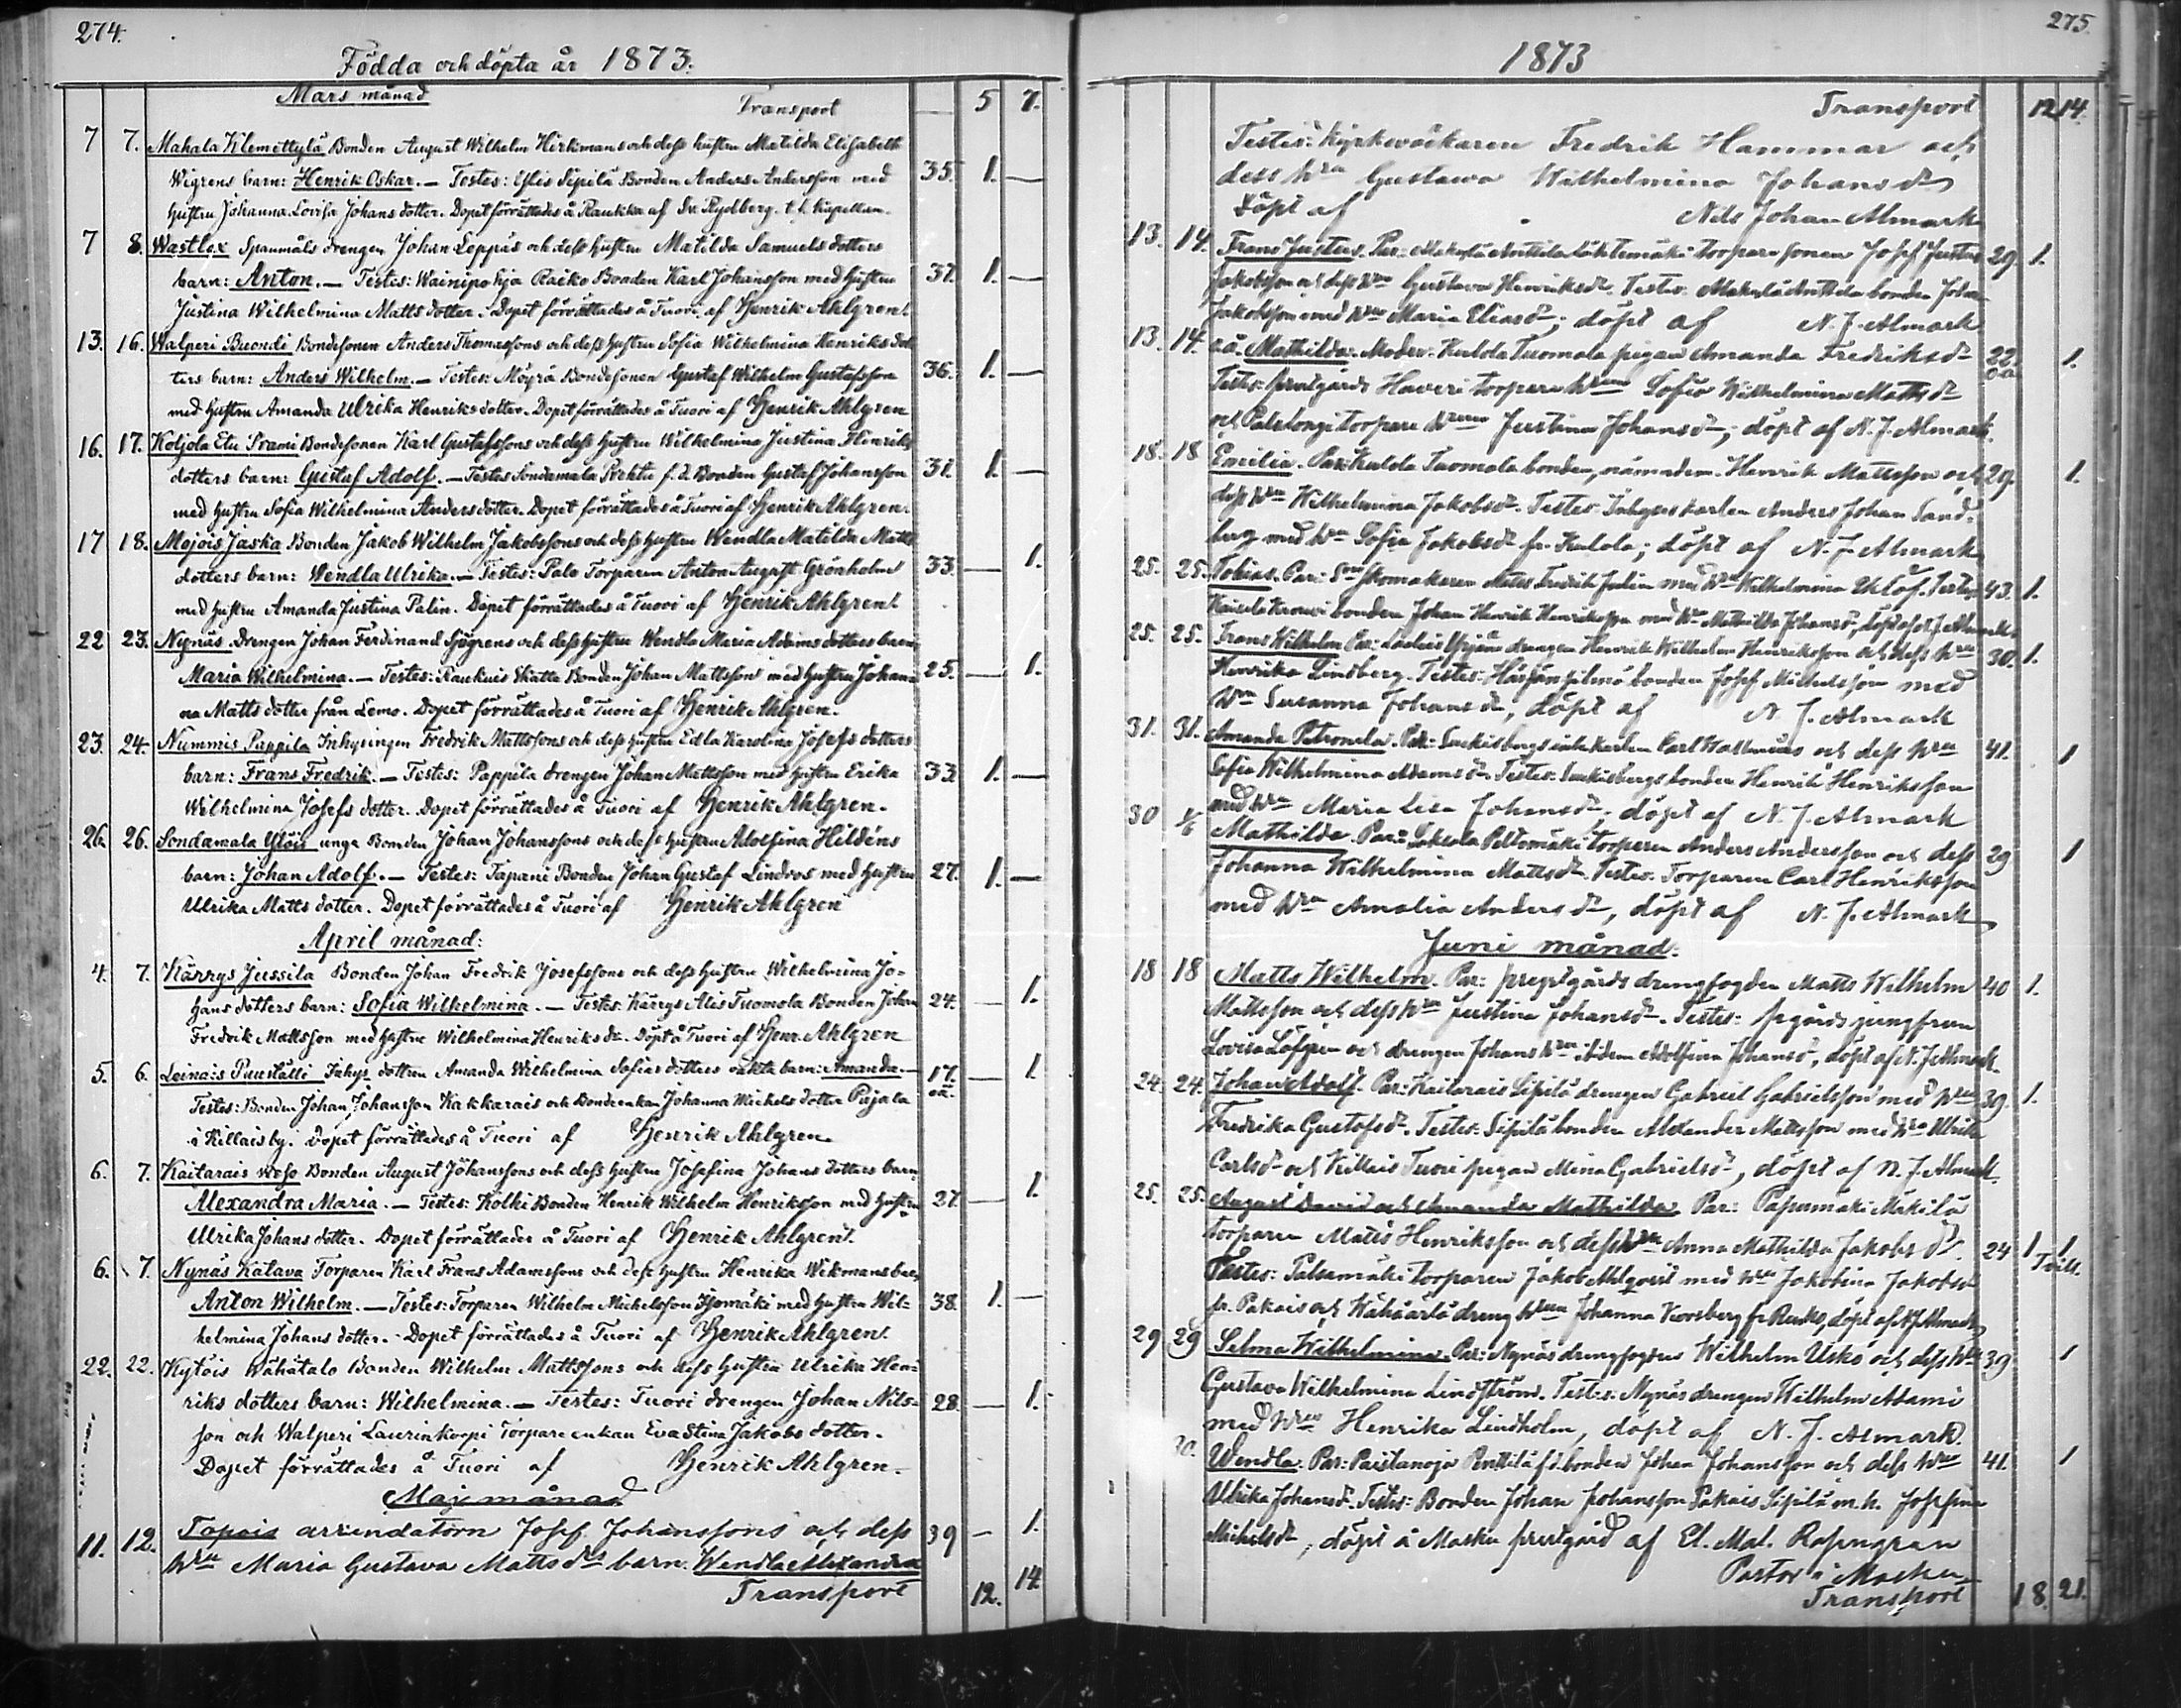 274.
Födda och döpta år 1873.
Mars månad
Transport 5 7.
7 7. Mahala Klemettylä Bonden August Wilhelm Hirkmans och dess hustru Matilda Elisabeth
Wigrens barn: Henrik Oskar. — Testes: Sipilä Bonden Anders Andersson med 35. 1. —
hustru Johanna Lovisa Johans dotter. Dopet förrättades å Raukka af Rydberg. t.f. Kapellan.
7 8. Wastlax Spanmåls drengen Johan Leppäs och dess hustru Matilda Samuels dotters
barn: Anton. — Testes: Wainipohja Raiko Bonden Karl Johansson med hustru 37. 1. —
Justina Wilhelmina Matts dotter. Dopet förrättades å Tuori af Henrik Ahlgren.
13. 16. Walperi Buondi Bondesonen Anders Thomassons och dess hustru Sofia Wilhelmina Henriks dot
ters barn: Anders Wilhelm. — Testes: Möyrä Bondesonen Gustaf Wilhelm Gustafsson 36. 1. —
med hustru Amanda Ulrika Henriksdotter. Dopet förrättades å Tuori af Henrik Ahlgren
16. 17. Koljola Bondesonen Karl Gustafssons och dess hustru Wilhelmina Justina Henriks
dotters barn: Gustaf Adolf. — Testes Sondamala f.d. Bonden Gustaf Johansson 31. 1. —
med hustru Sofia Wilhelmina Anders dotter. Dopet förrättades å Tuori af Henrik Ahlgren.
17 18. Mojois Jaska Bonden Jakob Wilhelm Jakobssons och dess hustru Wendla Matilda Matts
dotters barn: Wendla Ulrika. — Testes: Palo Torparen Anton August Grönholm 33. — 1.
med hustru Amanda Justina Palin. Dopet förrättades å Tuori af Henrik Ahlgren.
22 23. Nynäs drengen Johan Ferdinand Sjögrens och dess hustru Wendla Maria Adams dotters barn
Maria Wilhelmina. — Testes: Raukuis Skatta Bonden Johan Mattsson med hustru Johan 25. — 1.
na Matts dotter från Lemo. Dopet förrättades å Tuori af Henrik Ahlgren.
23. 24. Nummis Pappila Inhysingen Fredrik Mattssons och dess hustru Edla Karolina Josefs dotters
barn: Frans Fredrik. — Testes: Pappila drengen Johan Mattsson med hustru Erika 33. 1. —
Wilhelmina Josefs dotter. Dopet förrättades å Tuori af Henrik Ahlgren.
26. 26. Sondamala unge Bonden Johan Johanssons och dess hustru Adolfina Hildéns
barn: Johan Adolf. — Testes: Tapani Bonden Johan Gustaf Lindros med hustru 27. 1. —
Ulrika Matts dotter. Dopet förrättades å Tuori af Henrik Ahlgren
April månad:
4. 7. Kärrys Jussila Bonden Johan Fredrik Josefssons och dess hustru Wilhelmina Jo-
hans dotters barn: Sofia Wilhelmina. — Testes: Kärrys Alis Tuomola Bonden Johan 24. — 1.
Fredrik Mattsson med hustru Wilhelmina Henriks dr. Döpt å Tuori af Henr. Ahlgren
5. 6. Leinais Puuställi Inhys dottren Amanda Wilhelmina Sofias dotters oäkta barn: Amanda. — 17. oä. — 1.
Testes: Bonden Johan Johansson Kakkarais och Bondeenkan Johanna Michels dotter Pijala
i Killais by. Dopet förrättades å Tuori af Henrik Ahlgren
6. 7. Kaitarais Bonden August Johanssons och dess hustru Josefina Johans dotters barn
Alexandra Maria. — Testes: Kolki Bonden Henrik Wilhelm Henriksson med hustru 27. — 1.
Ulrika Johans dotter. Dopet förrättades å Tuori af Henrik Ahlgren.
6. 7. Nynäs Katava Torparen Karl Frans Adamssons och dess hustru Henrika Wikmans barn
Anton Wilhelm. — Testes: Torparen Wilhelm Michelsson med hustru Wil- 38. 1. —
helmina Johans dotter. Dopet förrättades å Tuori af Henrik Ahlgren.
22. 22. Kytöis Wähätalo Bonden Wilhelm Mattssons och dess hustru Ulrika Hen-
riks dotters barn: Wilhelmina. — Testes: Tuori drengen Johan Nils- 28. — 1.
son och Walperi Laurinkorpi Torpare enkan Eva Stina Jakobs dotter.
Dopet förrättades å Tuori af Henrik Ahlgren.
Maj månad
11. 12. Topois arrendatorn Josef Johanssons och dess 39 — 1.
hru Maria Gustava Matts dr barn: Wendla Alexandra
Transport 12. 14.
275.
1873
Transport 12 14.
Testes: Kyrkoväktaren Fredrik Hammar och
dess hru Gustava Wilhelmina Johans dr
döpt af Nils Johan Almark
13. 14. Frans Justus. Par: Anttila torparesonen Josef Justus 29 1.
Jakobsson och dess hru Gustava Henriksdr. Testes: Anttila bonden Johan
Jakobsson med hru Maria Eliasdr; döpt af N. J. Almark
13. 14. oä. Mathilda. Moder: Kulola Tuomola pigan Amanda Fredriksdr 22. oä 1.
Testes: prestgårds Haveri torpare hrun Sofia Wilhelmina Mattsdr
och torpare hrun Justina Johansdr; döpt af N. J. Almark.
18. 18 Emilia. Par: Kulola Tuomola bonden, nämndem. Henrik Mattsson och 29. 1.
dess hru Wilhelmina Jakobsdr. Testes: Inhyseskarlen Anders Johan Sand-
berg med hru Sofia Jakobsdr fr. Kulola; döpt af N. J. Almark
25. 25. Tobias. Par: Skomakaren Fredrik Julin med hru Wilhelmina Testes 43. 1.
bonden Johan Henrik Henriksson med hru Mathilda Johansdr, döpt af N. J. Almark.
25. 25. Frans Wilhelm Par: drengen Henrik Wilhelm Henriksson och dess hru 30. 1.
Henrika Lindberg. Testes: bonden Josef Michelsson med
hru Susanna Johans dr, döpt af N. J. Almark
31. 31. Amanda Petronela. Par: Carl och dess hru 41. 1
Sofia Wilhelmina Adamsdr. Testes: bonden Henrik Henriksson
med hru Maria Lisa Johansdr; döpt af N. J. Almark
30 1/6 Mathilda. Par: Peltomäki torparen Anders Andersson och dess 29 1
Johanna Wilhelmina Mattsdr. Testes: Torparen Carl Henriksson
med hru Amalia Anders dr, döpt af N. J. Almark
Juni månad.
18 18 Matts Wilhelm. Par: prestgårds drengfogden Matts Wilhelm 40 1.
Mattsson och dess hru Justina Johansdr. Testes: pgårds jungfrun
Lovisa Löfgren och drengen Johans hru ibidem Adolfina Johansdr, döpt af N. J. Almark.
24. 24. Johan Adolf. Par: Kaitarais Sipilä drengen Gabriel Gabrielsson med hru 39. 1.
Fredrika Gustafsdr. Testes: Sipilä bonden Alexander Mattsson med hru Ulrika
Carlsdr och Killais Tuori pigan Mina Gabrielsdr, döpt af N. J. Almark.
25. 25. August David och Amanda Mathilda. Par: Papumäki Mäkilä
torparen Matts Henriksson och dess hru Anna Mathilda Jakobs dr. 24 1 1 Tvill.
Testes: torparen Jakob Ahlqvist med hru Jakobina Jakobsdr
fr. Pakais och dreng hrun Johanna Korsberg fr. döpt af N. J. Almark
29 29 Selma Wilhelmina. Par: Nynäs drengfogden Wilhelm Usko och dess hru 39 1
Gustava Wilhelmina Lindström. Testes: Nynäs drengen Wilhelm Adami
med hru Henrika Lindholm, döpt af N. J. Almark.
30. Wendla. Par: Paistanoja Penttilä f.d. bonden Johan Johansson och dess hru 41. 1
Ulrika Johansdr. Testes: Bonden Johan Johansson Pakais Sipilä m. h. Josefina
Michelsdr, döpt å Masku prestgård af El. Mal. Rosengren
Pastor i Masku
Transport 18. 21.